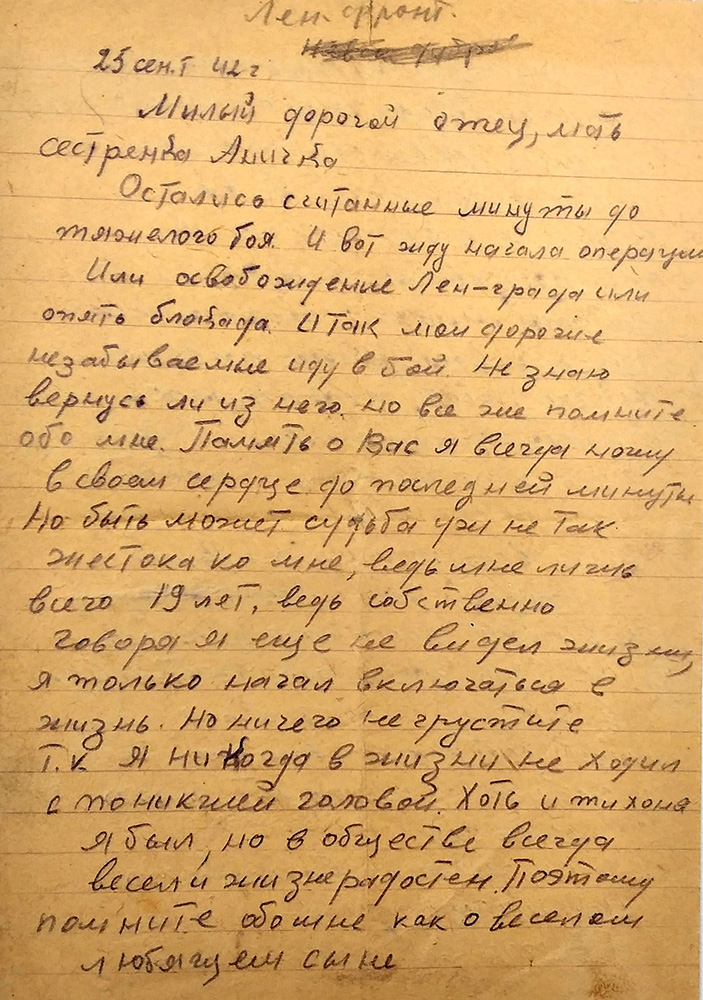 Лен. фронт.
25 сент 42 г
Милый дорогой отец, мать
сестренка Аничка
Остались считанные минуты до
тяжелого боя. И вот жду начала операции
Или освобождение Лен-града или
опять блокада. Итак мои дорогие
незабываемые иду в бой. Не знаю
вернусь ли из него. но все же помните
обо мне. Память о Вас я всегда ношу
в своем сердце до последней минуты
Но быть может судьба уж не так
жестока ко мне, ведь мне лишь
всего 19 лет, ведь собственно
говоря я еще не видел жизни,
я только начал включаться в
жизнь. Но ничего не грустите
т.к я никогда в жизни не ходил
с поникшей головой. Хоть и тихоня
я был, но в обществе всегда
весел и жизнерадостен. Поэтому
помните обо мне как о веселом
любящем сыне